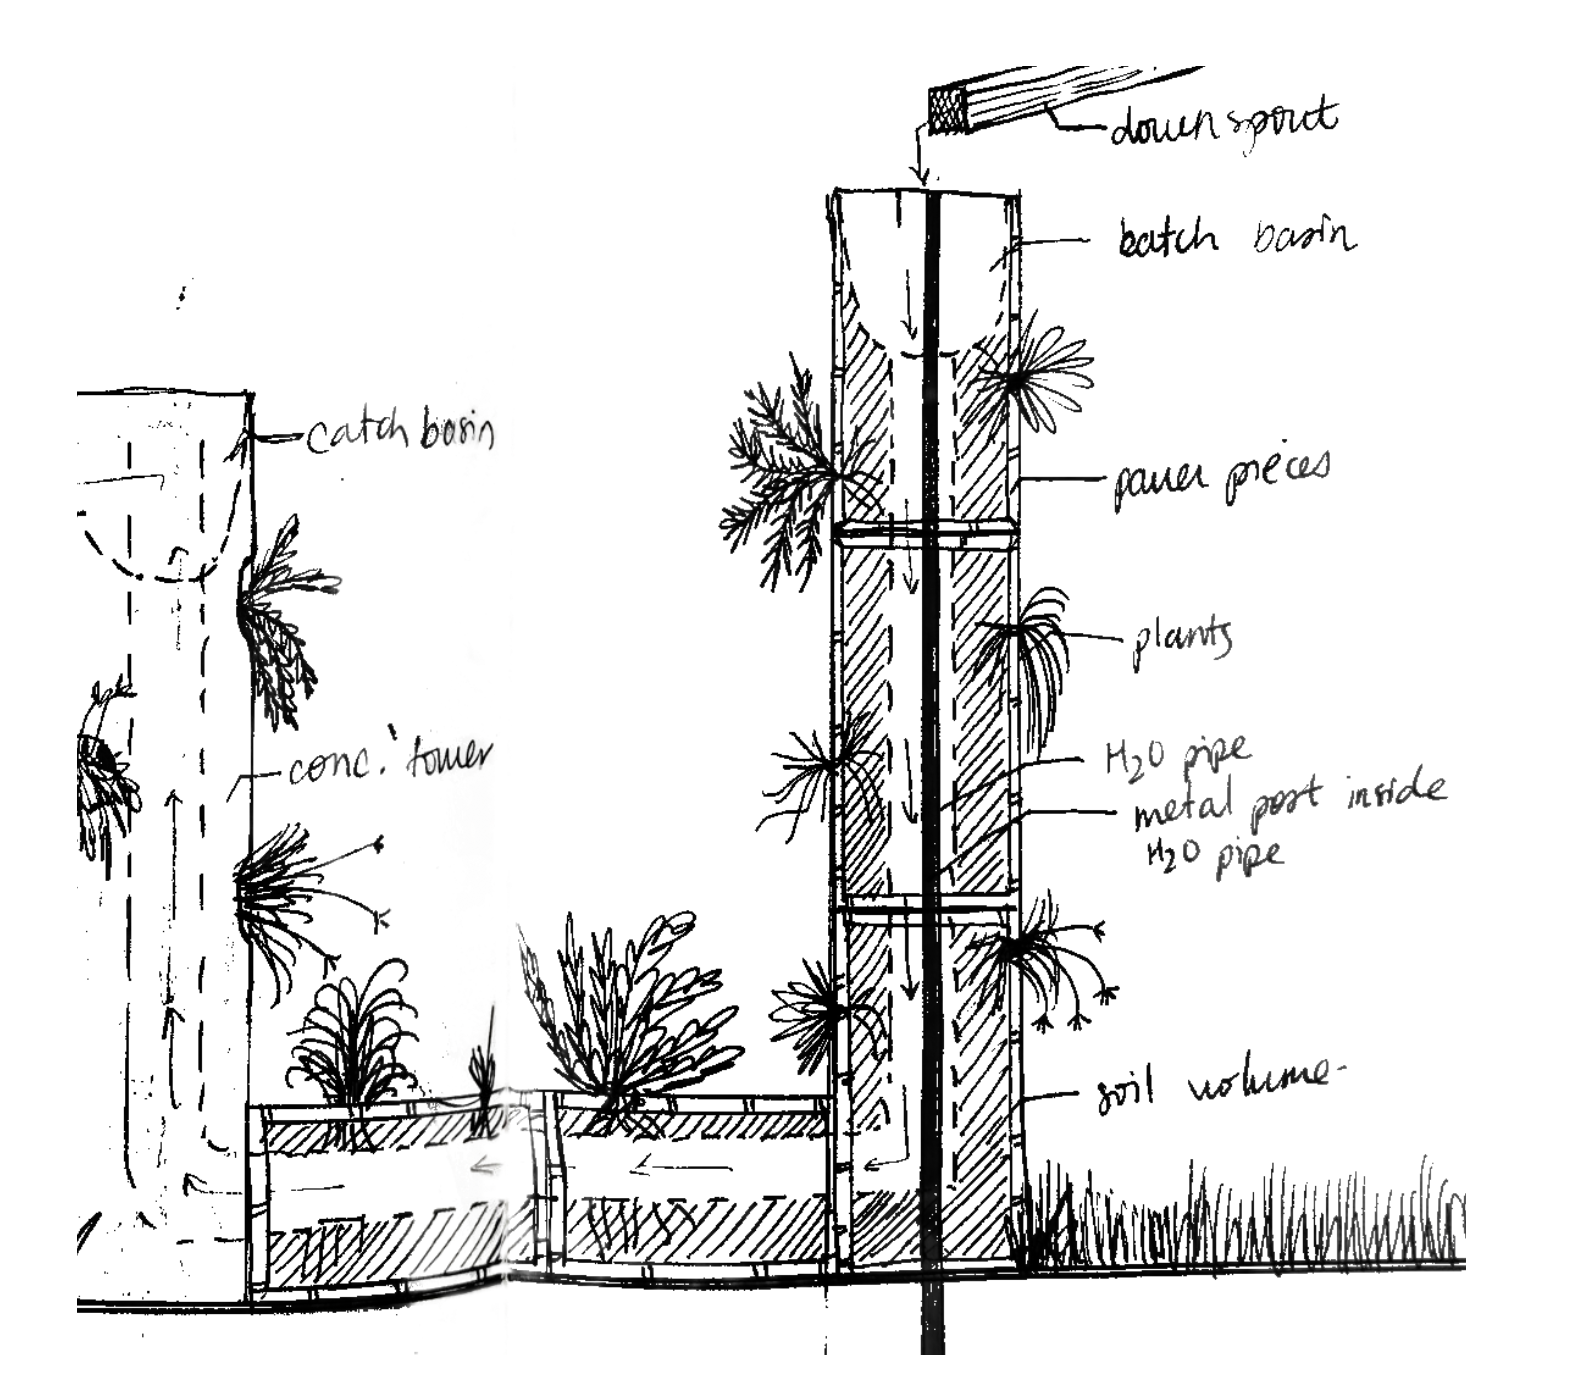 down spout
batch basin
catch basin
paver pieces
plants
conc. tower
H2O pipe
metal post inside
H2O pipe
soil volume